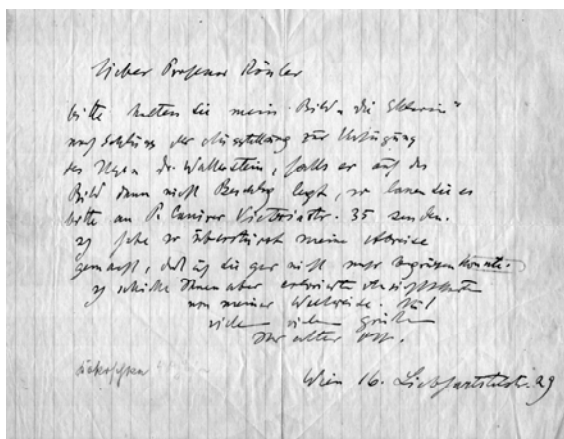 Lieber Professor Rößler
bitte halten Sie mein Bild „die Sklavin"
nach Schluss der Ausstellung zur Verfügung
des Herrn Dr. Wallerstein, falls er auf das
Bild dann nicht Beschlag legt, so lassen Sie es
bitte an P. Cassirer Victoriastr. 35 senden.
Ich habe so überstürzt meine Abreise
gemacht, daß ich Sie gar nicht mehr begrüssen konnte.
Ich schicke Ihnen aber Ansichtskarten
von meiner Weltreise.
viele viele Grüße
Ihr alter
Wien 16. Liebhartstalstr. 29